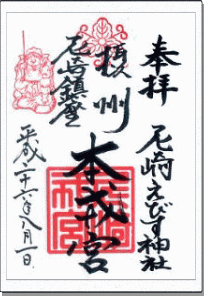 奉拝
尾崎えびす神社
摂州
本戎宮
尾崎鎮座
平成二十六年八月一日